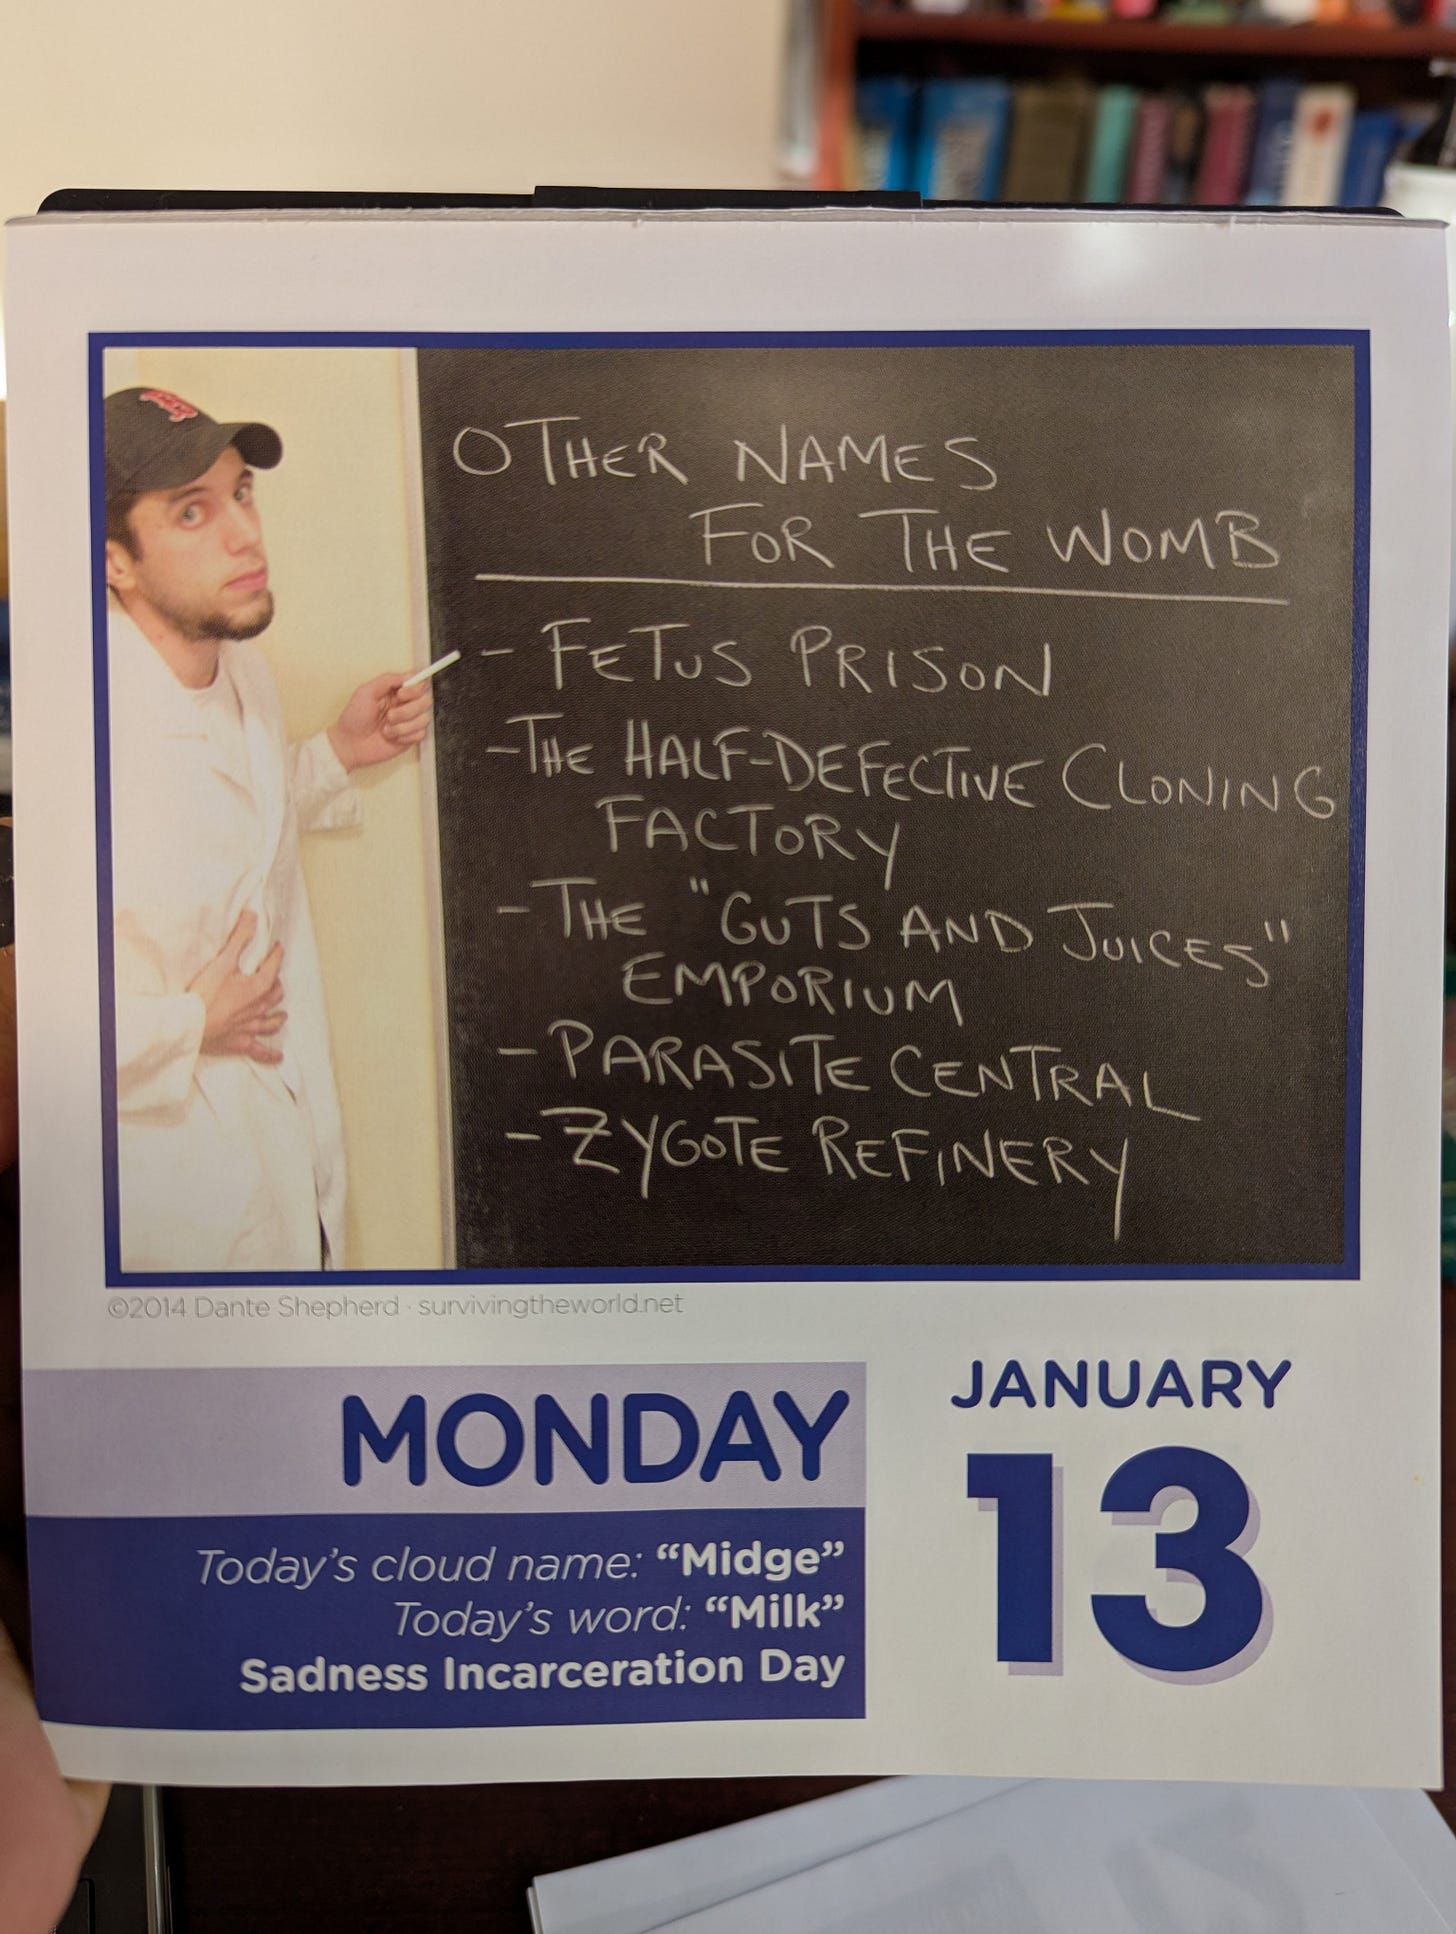 OTHER NAMES
FOR THE WOMB
- FETUS PRISON
- THE HALF-DEFECTIVE CLONING
FACTORY
- THE "GUTS AND JUICES"
EMPORIUM
- PARASITE CENTRAL
- ZYGOTE REFINERY
©2014 Dante Shepherd · survivingtheworld.net
MONDAY
Today's cloud name: “Midge”
Today's word: “Milk”
Sadness Incarceration Day
JANUARY
13